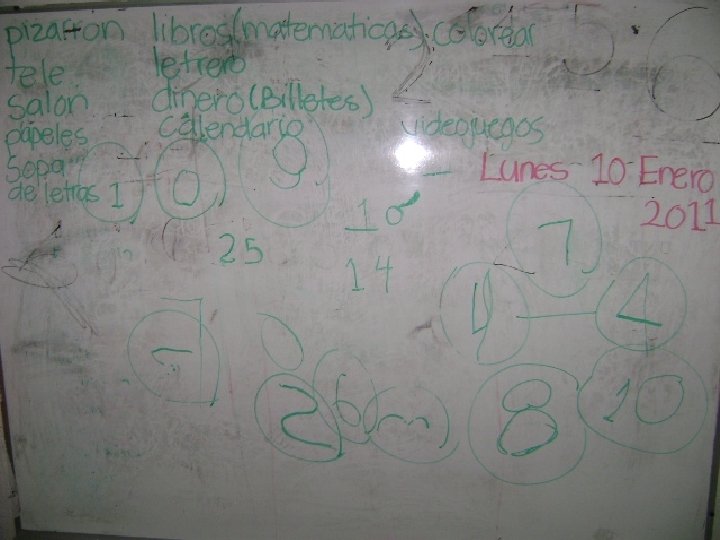 pizarron libros(matematicas) colorear
tele letrero
salon dinero(Billetes)
papeles calendario videojuegos
Sopa
de letras
Lunes 10 Enero
2011
1 0 9
10
25
14
7
4
2 6 3
8 10